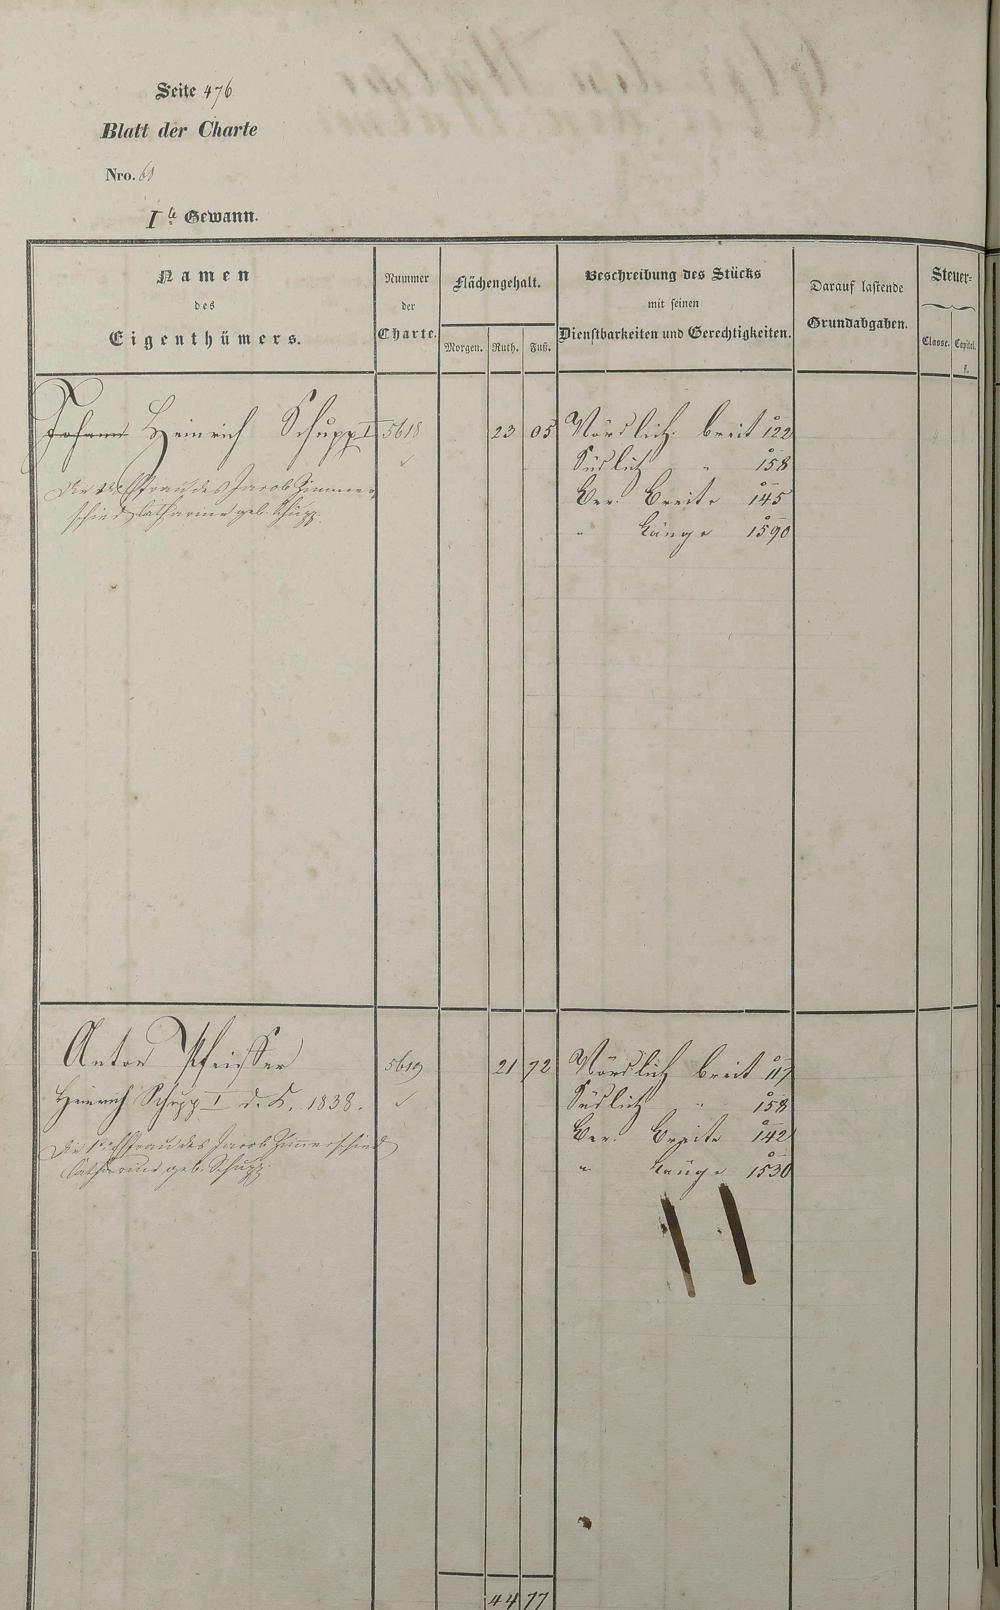 Seite 476
Blatt der Charte
Nro. 61
Ite Gewann.
Namen
des
Eigenthümers.
Nummer
der
Charte.
Flächengehalt.
Morgen. Ruth. Fuß.
Beschreibung des Stücks
mit seinen
Dienstbarkeiten und Gerechtigkeiten.
Darauf lastende
Grundabgaben.
Steuer-
Classe. Capital.
Johann Heinrich Schupp I 5618 23 05 Nördlich breit 122
Südlich " 158
Ver. Breite 145
" Länge 1590
Die Ehefrau des Jacob Zimmer
schied Catharine geb. Schupp.
Anton Pfeiffer 5619 21 72 Nördlich breit 117
Heinrich Schupp I d. K. 1838. Südlich " 158
Die Ehefrau des Jacob Zimmerschied Ver. Breite 142
Catharine geb. Schupp. " Länge 1530
44 77